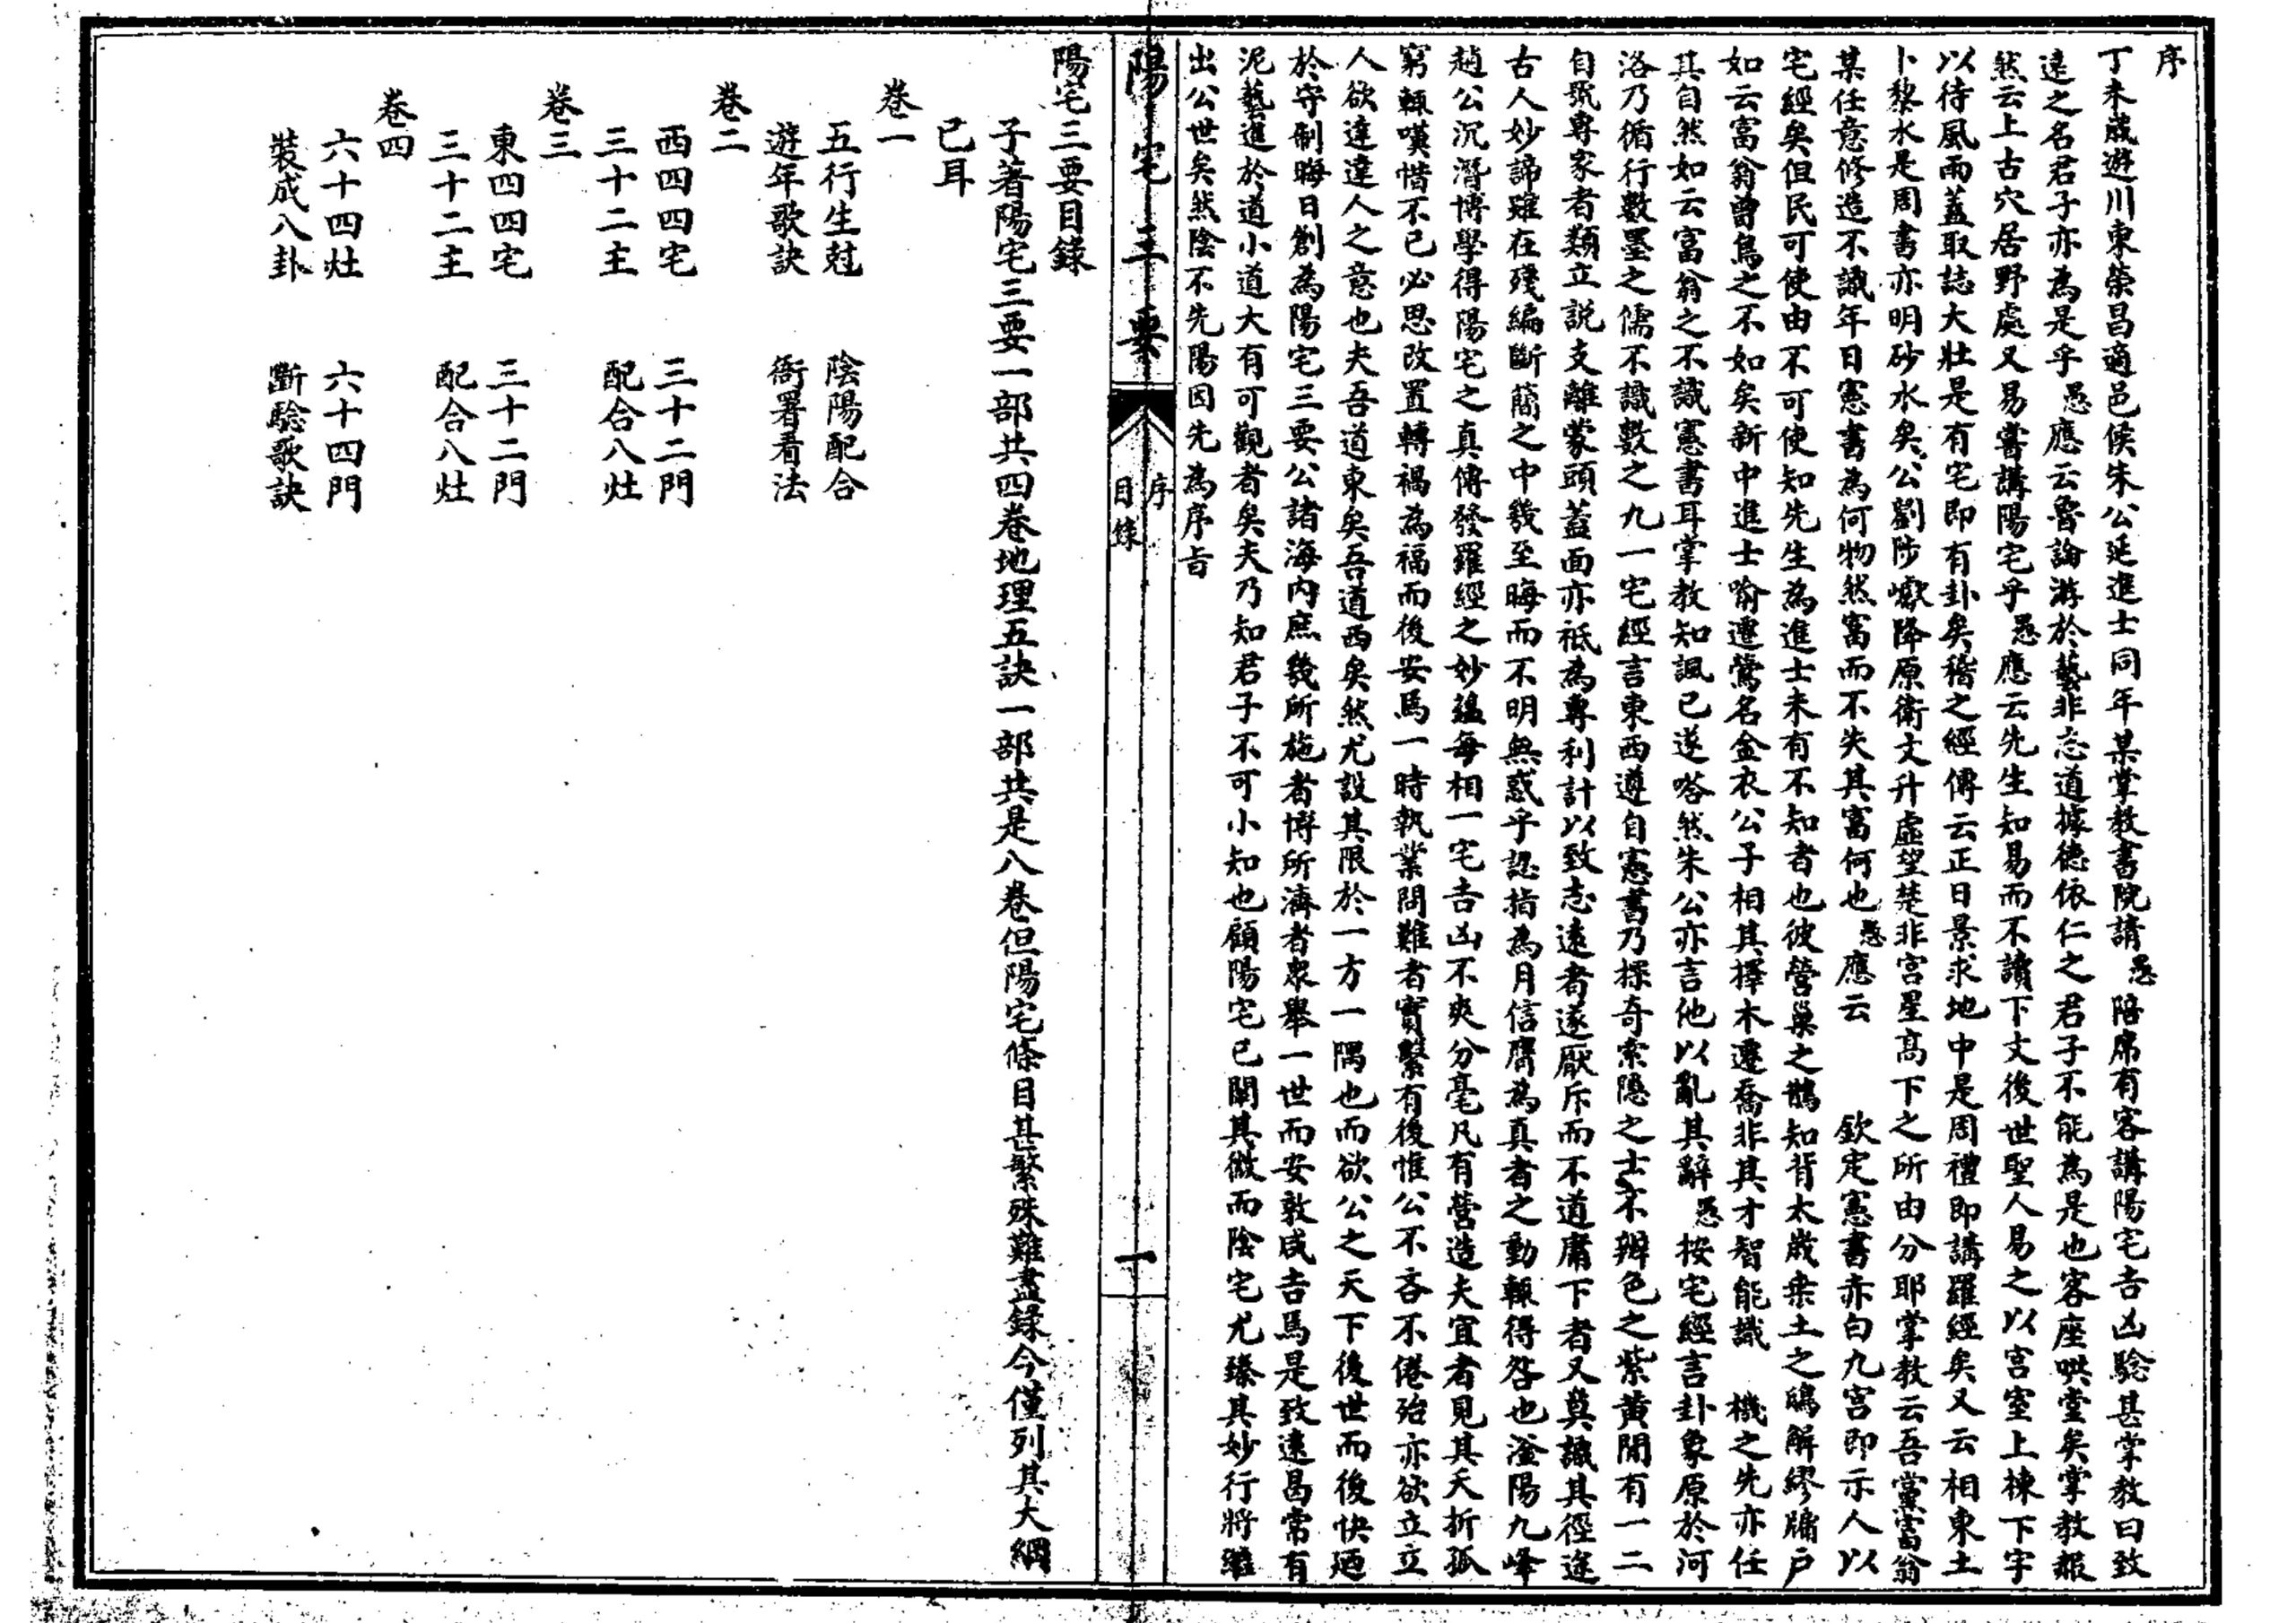 序
丁未歲遊川東榮昌適邑侯朱公延進士同年某掌教書院請愚陪席有客講陽宅吉凶驗甚掌教曰致
遠之名君子亦為是乎愚應云魯論游於藝非忘道據德依仁之君子不能為是也客座哄堂矣掌教報
然云上古穴居野處又易嘗講陽宅乎愚應云先生知易而不讀下文後世聖人易之以宮室上棟下宇
以待風雨蓋取諸大壯是有宅即有卦矣稽之經傳云正日景求地中是周禮即講羅經矣又云相東土
卜黎水是周書亦明砂水矣公劉陟巘降原衛文升虛望楚非宮星高下之所由分耶掌教云吾黨富翁
某任意修造不識年日憲書為何物然富而不失其富何也愚應云欽定憲書亦白九宮即示人以
宅經矣但民可使由不可使知先生為進士未有不知者也彼營巢之鵲知背太歲桑土之鴟解繆牖戶
如云富翁曾鳥之不如矣新中進士喻遷鶯名金衣公子相其擇木遷喬非其才智能識機之先亦任
其自然如云富翁之不識憲書耳掌教知諷已遂嗒然朱公亦言他以亂其辭愚按宅經言卦象原於河
洛乃循行數墨之儒不識數之九一宅經言東西遵自憲書乃探奇索隱之士不辨色之紫黃間有一二
自號專家者類立說支離蒙頭蓋面亦祇為專利計以致志遠者遂厭斥而不道庸下者又莫識其徑途
古人妙諦雖在殘編斷簡之中幾至晦而不明無惑乎認指為月信贋為真者之動輒得咎也滏陽九峰
趙公沉潛博學得陽宅之真傳發羅經之妙蘊每相一宅吉凶不爽分毫凡有營造夫宜者見其夭折孤
窮輒嘆惜不已必思改置轉禍為福而後安焉一時執業問難者實繁有後惟公不吝不倦殆亦欲立立
人欲達達人之意也夫吾道東矣吾道西矣然尤設其限於一方一隅也而欲公之天下後世而後快廼
於守制晦日創為陽宅三要公諸海內庶幾所施者博所濟者衆舉一世而安敦咸吉焉是致遠曷常有
泥藝進於道小道大有可觀者矣夫乃知君子不可小知也顧陽宅已闡其微而陰宅尤臻其妙行將繼
出公世矣然陰不先陽因先為序旨
陽宅三要
序
目錄
一
陽宅三要目錄
子著陽宅三要一部共四卷地理五訣一部共是八卷但陽宅條目甚繁殊難盡錄今僅列其大綱
已耳
卷一
五行生尅　陰陽配合
遊年歌訣　衙署看法
卷二
西四四宅　三十二門
三十二主　配合八灶
卷三
東四四宅　三十二門
三十二主　配合八灶
卷四
六十四灶　六十四門
裝成八卦　斷驗歌訣